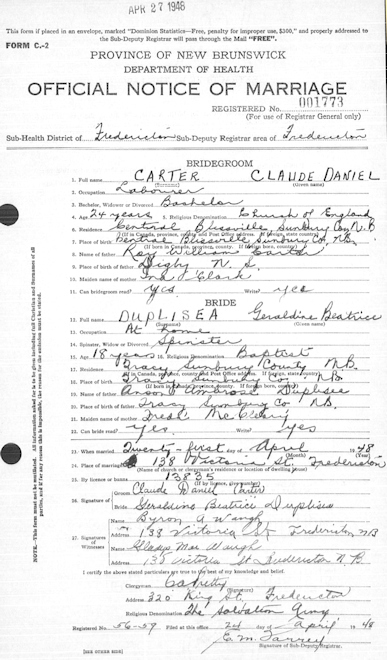 APR 27 1948
This form if placed in an envelope, marked "Dominion Statistics—Free, penalty for improper use, $300," and properly addressed to
the Sub-Deputy Registrar will pass through the Mail "FREE".
FORM C.-2
PROVINCE OF NEW BRUNSWICK
DEPARTMENT OF HEALTH
OFFICIAL NOTICE OF MARRIAGE
REGISTERED No. 001773
(For use of Registrar General only)
Sub-Health District of Fredericton Sub-Deputy Registrar area of Fredericton
BRIDEGROOM
1. Full name CARTER CLAUDE DANIEL
(Surname) (Given name)
2. Occupation Labourer
3. Bachelor, Widower or Divorced Bachelor
4. Age 24 years 5. Religious Denomination Church of England
6. Residence Central Blissville, Sunbury Co. N.B
(If in Canada, province, county and Post Office address. If foreign, state country)
7. Place of birth Central Blissville Sunbury Co. N.B.
(If born in Canada, province, county and place. If foreign, state country)
8. Name of father Roy William Carter
9. Place of birth of father Digby N. S.
10. Maiden name of mother Clark
11. Can bridegroom read? Yes Write? yes
BRIDE
12. Full name DUPLISEA Geraldine Beatrice
(Surname) (Given name)
13. Occupation At Home
14. Spinster, Widow or Divorced Spinster
15. Age 18 years 16. Religious Denomination Baptist
17. Residence Tracy Sunbury County N.B.
(If in Canada, province, county and Post Office address. If foreign, state country)
18. Place of birth Tracy Sunbury Co. N.B.
(If born in Canada, province, county and place. If foreign, state country)
19. Name of father Anson Ambrose Duplisea
20. Place of birth of father Tracy Sunbury Co N.B.
21. Maiden name of mother McCleary
22. Can bride read? Yes, Write? Yes
23. When married Twenty-first day of April 1948
(Month)
24. Place of marriage 138 Victoria St. Fredericton
(Name of church or clergyman's residence or location of dwelling house)
25. By license or banns 13835
(If by license, give number)
26. Signature of
Groom Claude Daniel Carter
Bride Geraldine Beatrice Duplisea
27. Signature of Witnesses
Name Byron A Waugh
Address 138 Victoria St. Fredericton N.B
Name Gladys Mae Waugh
Address 138 Victoria St Fredericton N.B.
I certify the above stated particulars are true to the best of my knowledge and belief.
Clergyman
Address 320 King St. Fredericton
Religious Denomination The Salvation Army
Registered No. 56-59 Filed at this office 24 day of April 1948
E. M.
Signature of Sub-Deputy Registrar.
[SEE OTHER SIDE]
NOTE.—This form must not be mutilated. All information asked for is to be given including full Christian and Surnames of all